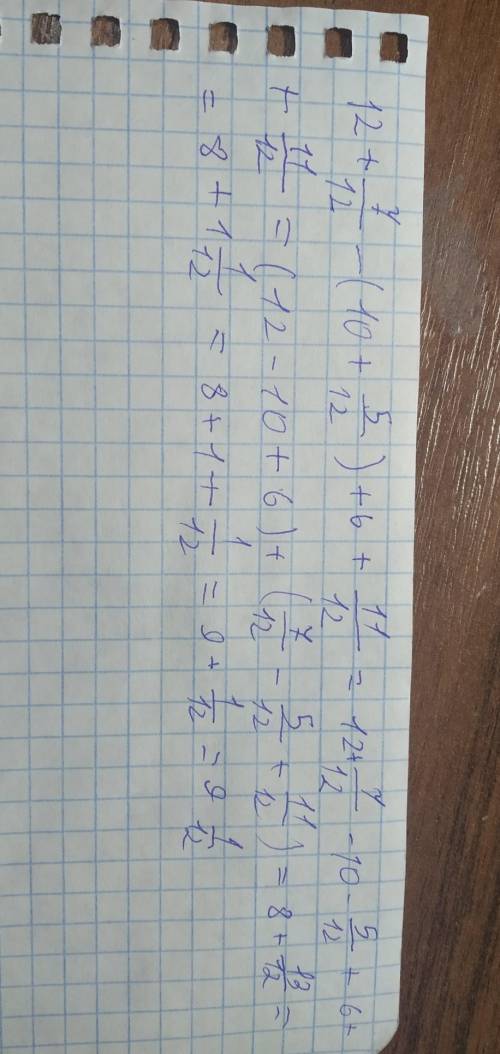 12 + 7/12 - (10 + 5/12) + 6 + 11/12 = 12 + 7/12 - 10 - 5/12 + 6 +
+ 11/12 = (12 - 10 + 6) + (7/12 - 5/12 + 11/12) = 8 + 13/12 =
= 8 + 1 1/12 = 8 + 1 + 1/12 = 9 + 1/12 = 9 1/12